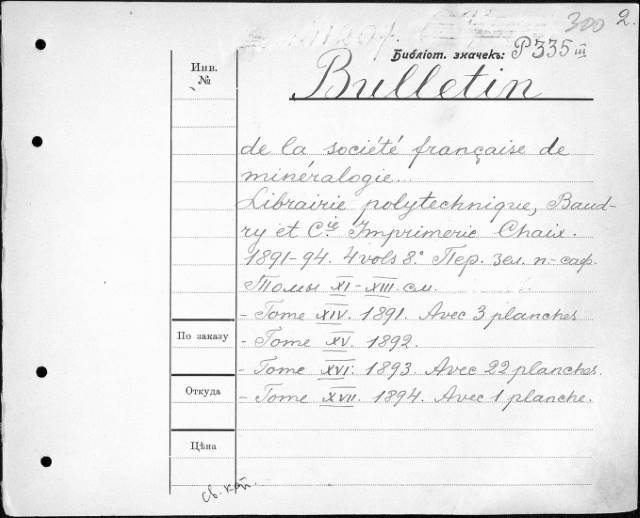 300 2.
Библіот. значекъ: P335 III
Инв.
№
Bulletin
de la société française de
minéralogie...
Librairie polytechnique, Baud-
ry et Cie Imprimerie Chaix.
1891-94. 4 vols 8º Пер. зел. п.-саф.
Томы XI-XIII. см.
- Tome XIV. 1891. Avec 3 planches
По заказу
- Tome XV. 1892.
- Tome XVI. 1893. Avec 22 planches.
Откуда
- Tome XVII. 1894. Avec 1 planche.
Цѣна
св. кат.